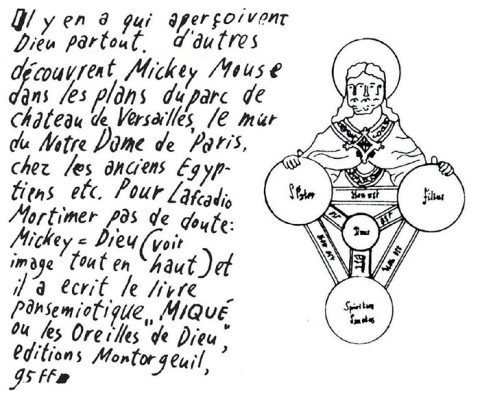 Il y en a qui aperçoivent
Dieu partout. d'autres
découvrent Mickey Mouse
dans les plans du parc de
chateau de Versailles, le mur
du Notre Dame de Paris,
chez les anciens Egyp-
tiens etc. Pour Lafcadio
Mortimer pas de doute:
Mickey = Dieu (voir
image tout en haut) et
il a ecrit le livre
pansemiotique "MIQUÉ
ou les Oreilles de Dieu",
editions Montorgeuil,
95FF
Non est
filius
EST
EST
Deus
Non EST
EST
Non EST
Spiritus
Sanctus